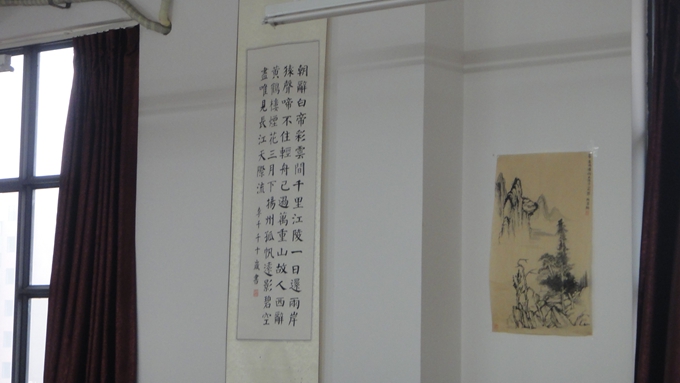 朝辭白帝彩雲間千里江陵一日還兩岸
猿聲啼不住輕舟已過萬重山故人西辭
黃鶴樓煙花三月下揚州孤帆遠影碧空
盡唯見長江天際流